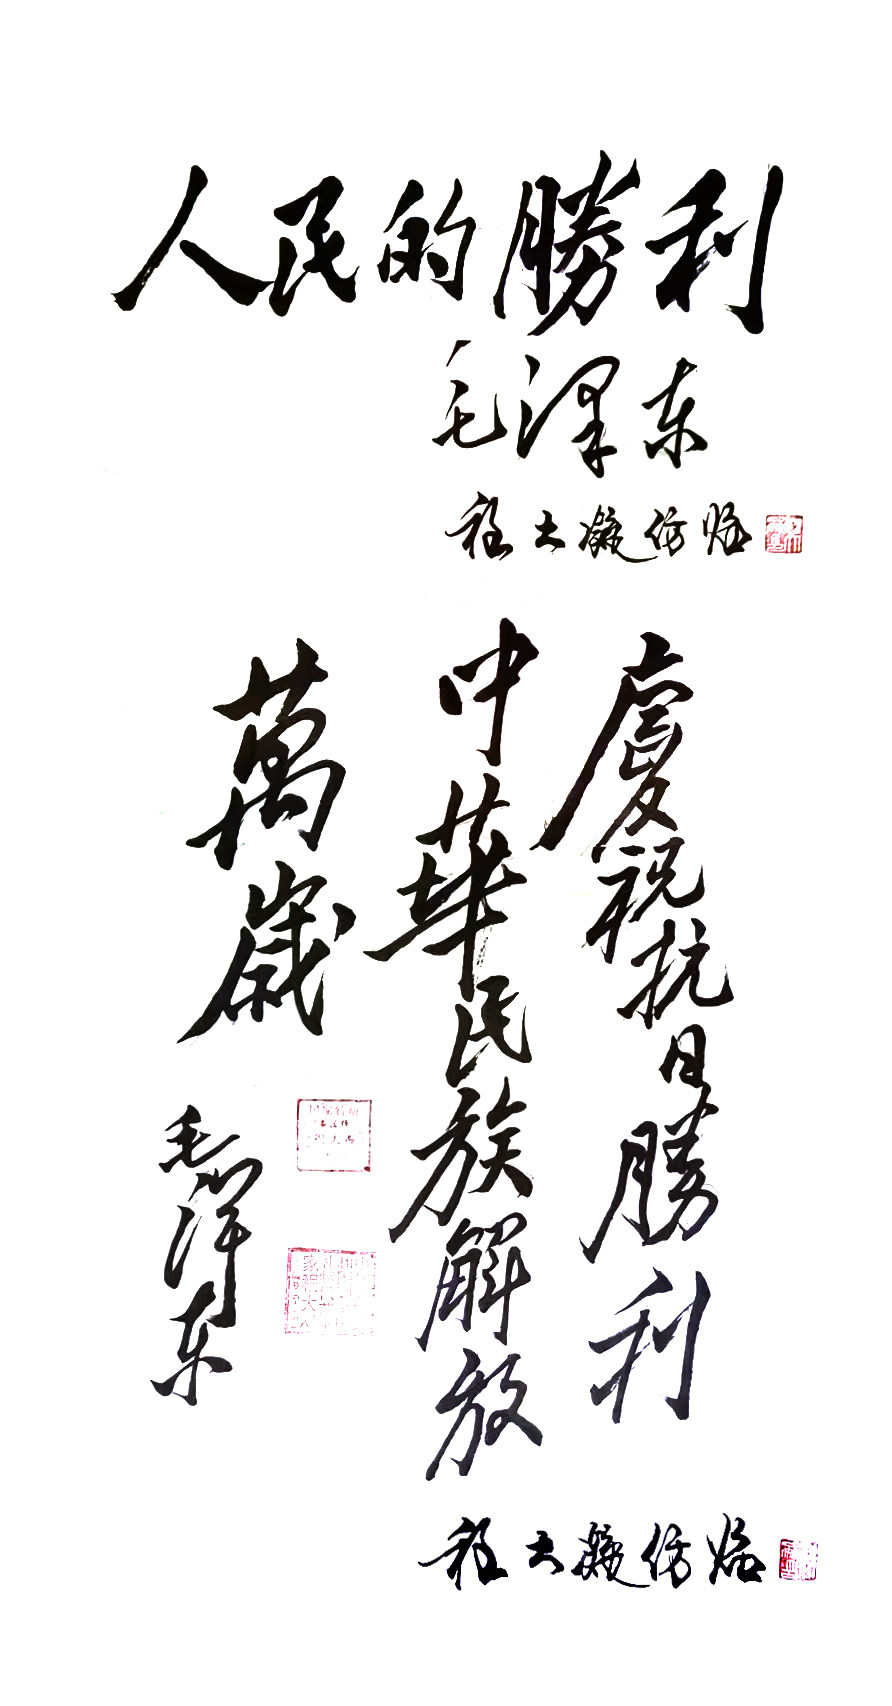 人民的勝利
毛泽东
程大凝仿临
慶祝抗日勝利
中華民族解放
萬歲
毛泽东
程大凝仿临